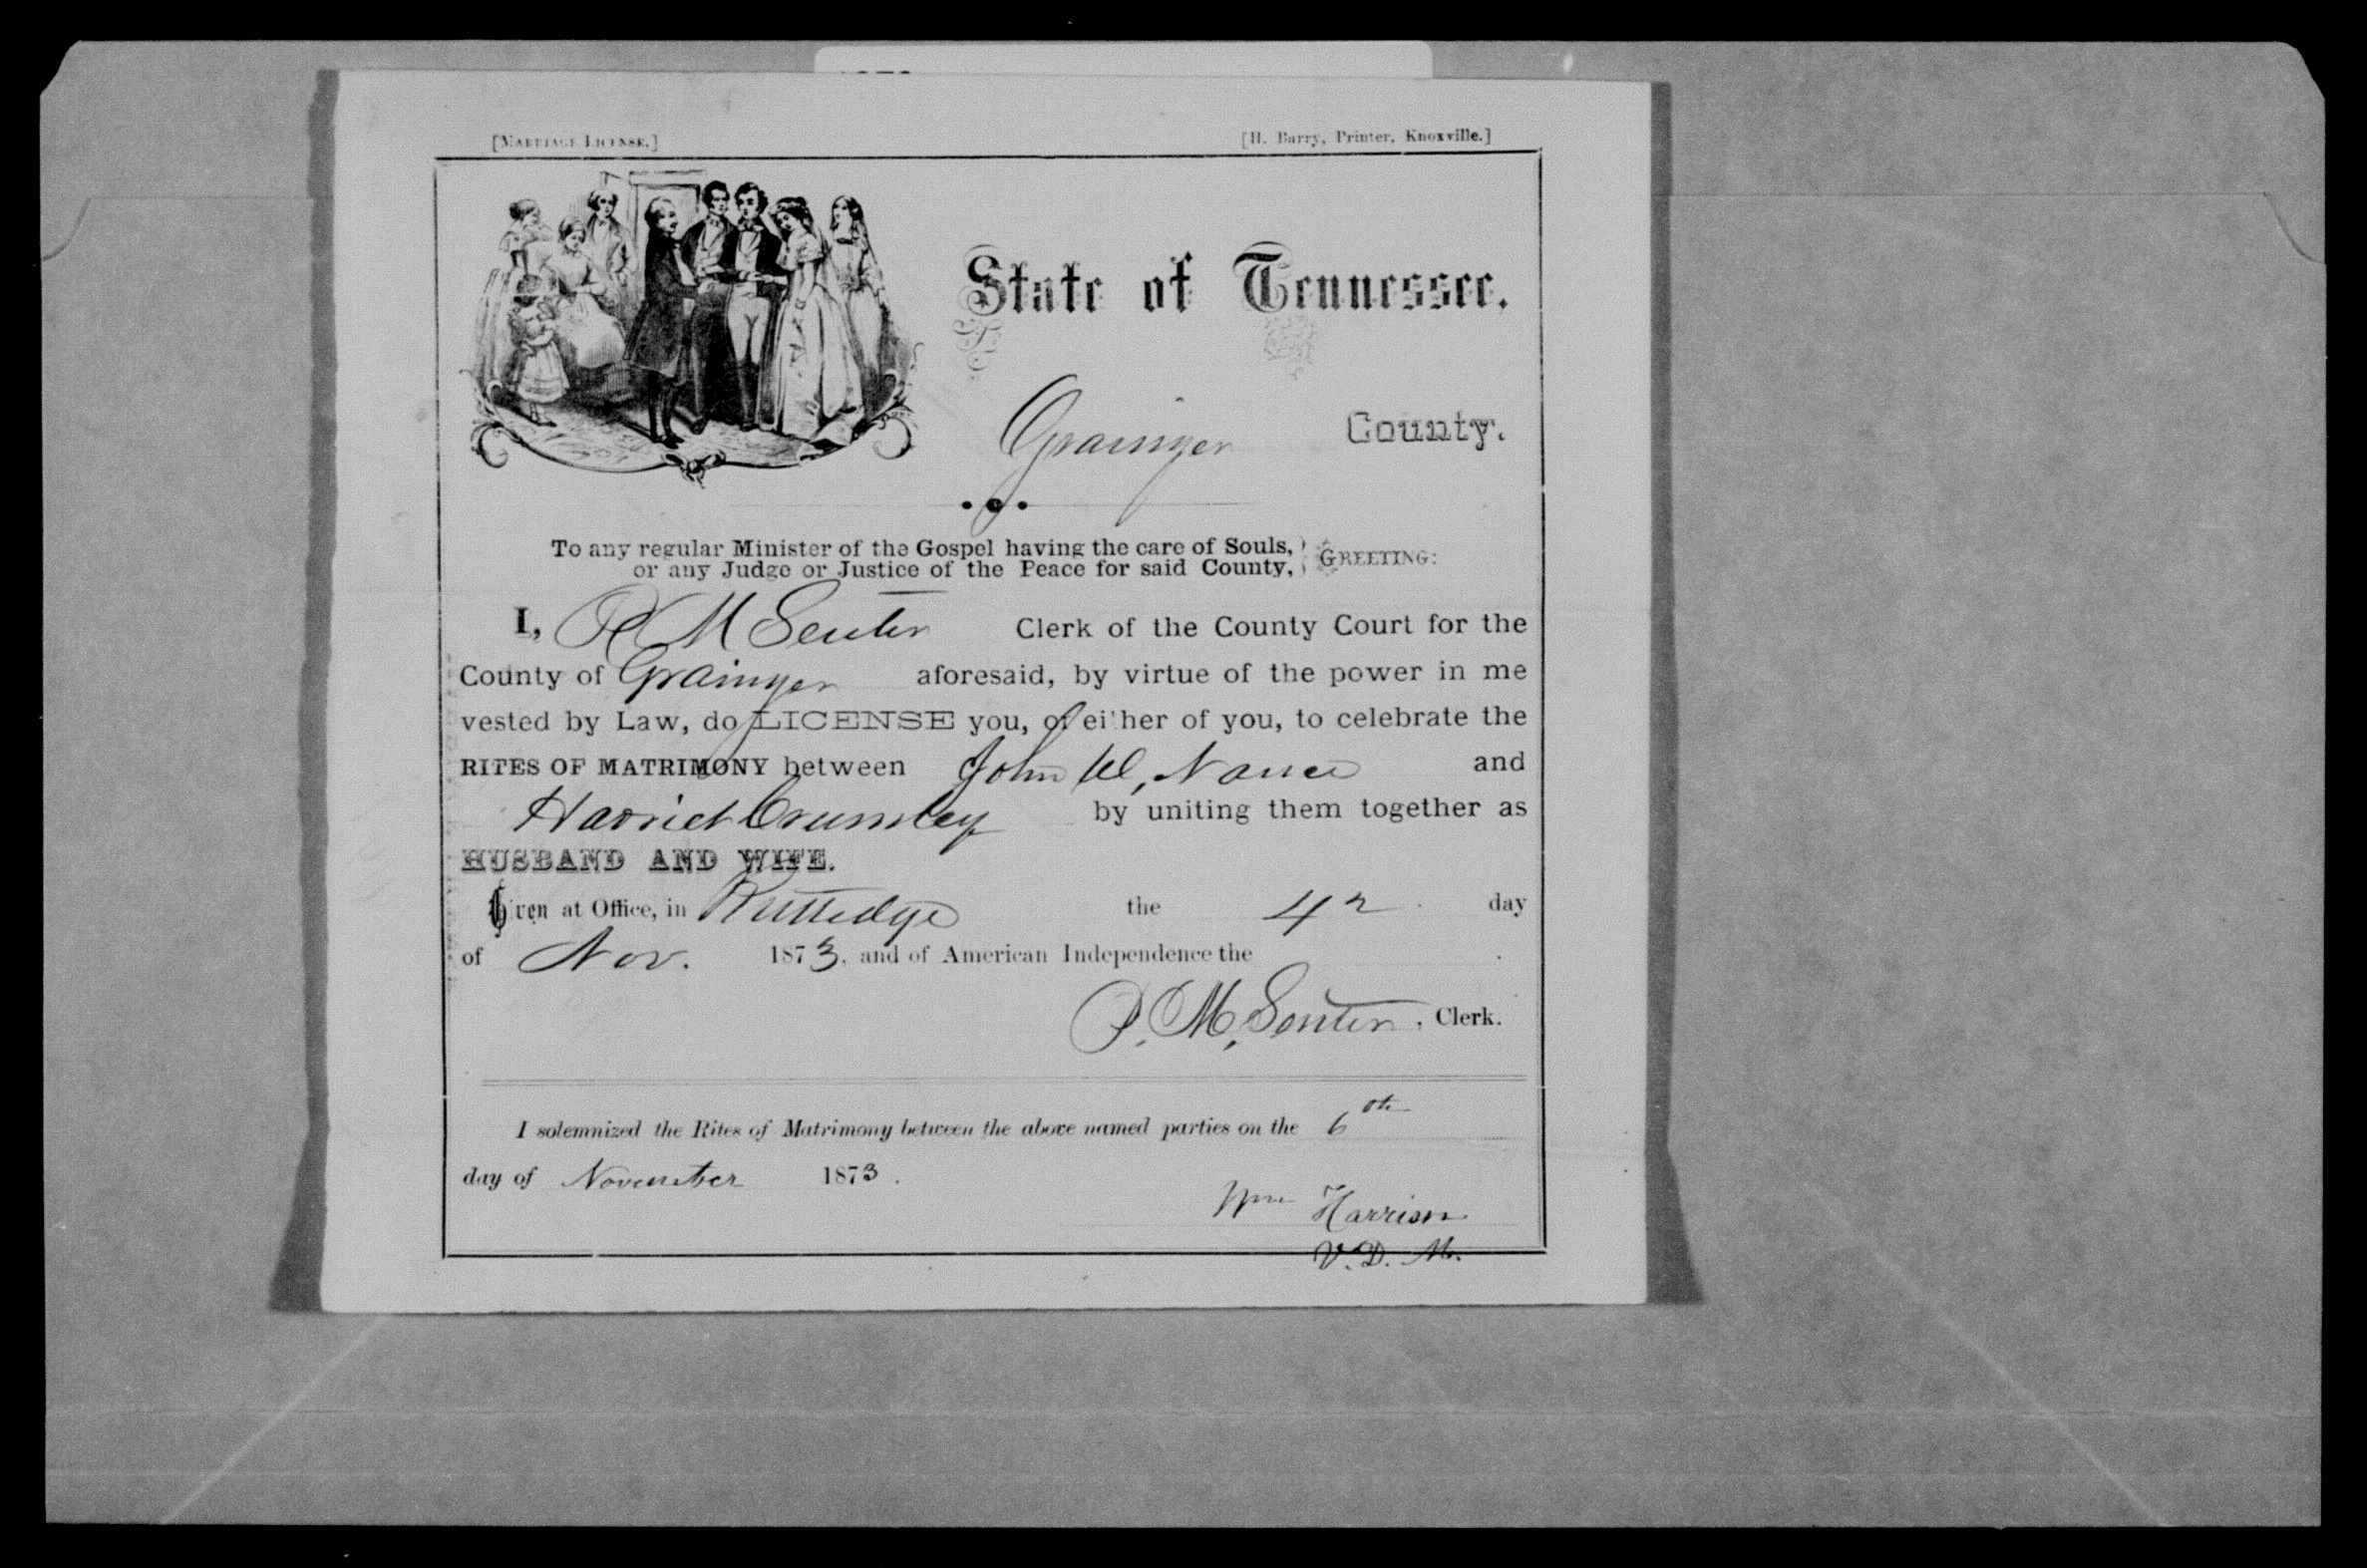 [Marriage License.] [H. Barry, Printer, Knoxville.]
State of Tennessee.
Grainger County.
To any regular Minister of the Gospel having the care of Souls,
or any Judge or Justice of the Peace for said County, GREETING:
I, P M Senter Clerk of the County Court for the
County of Grainger aforesaid, by virtue of the power in me
vested by Law, do LICENSE you, or either of you, to celebrate the
RITES OF MATRIMONY between John W, Nance and
Harriet Crumley by uniting them together as
HUSBAND AND WIFE.
Given at Office, in Rutledge the 4th day
of Nov. 1873, and of American Independence the
P. M. Senter, Clerk.
I solemnized the Rites of Matrimony between the above named parties on the 6th
day of November 1873.
Wm Harrison
V. D. M.